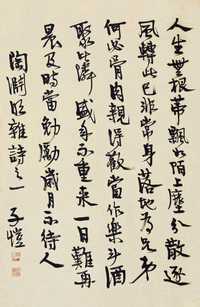 人生無根蒂飄如陌上塵分散逐
風轉此已非常身落地為兄弟
何必骨肉親得歡當作樂斗酒
聚比鄰盛年不重來一日難再
晨及時當勉勵歲月不待人
陶淵明雜詩之一 子愷